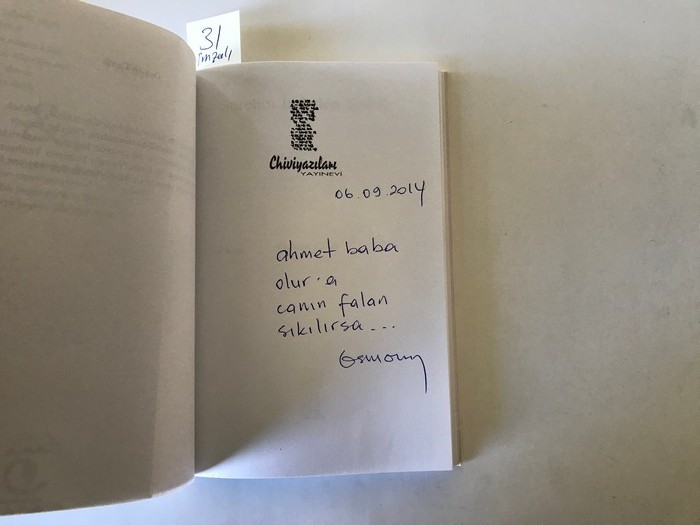 31
İmzalı
Chiviyazıları
YAYINEVİ
06.09.2014
ahmet baba
olur'a
canın falan
sıkılırsa...